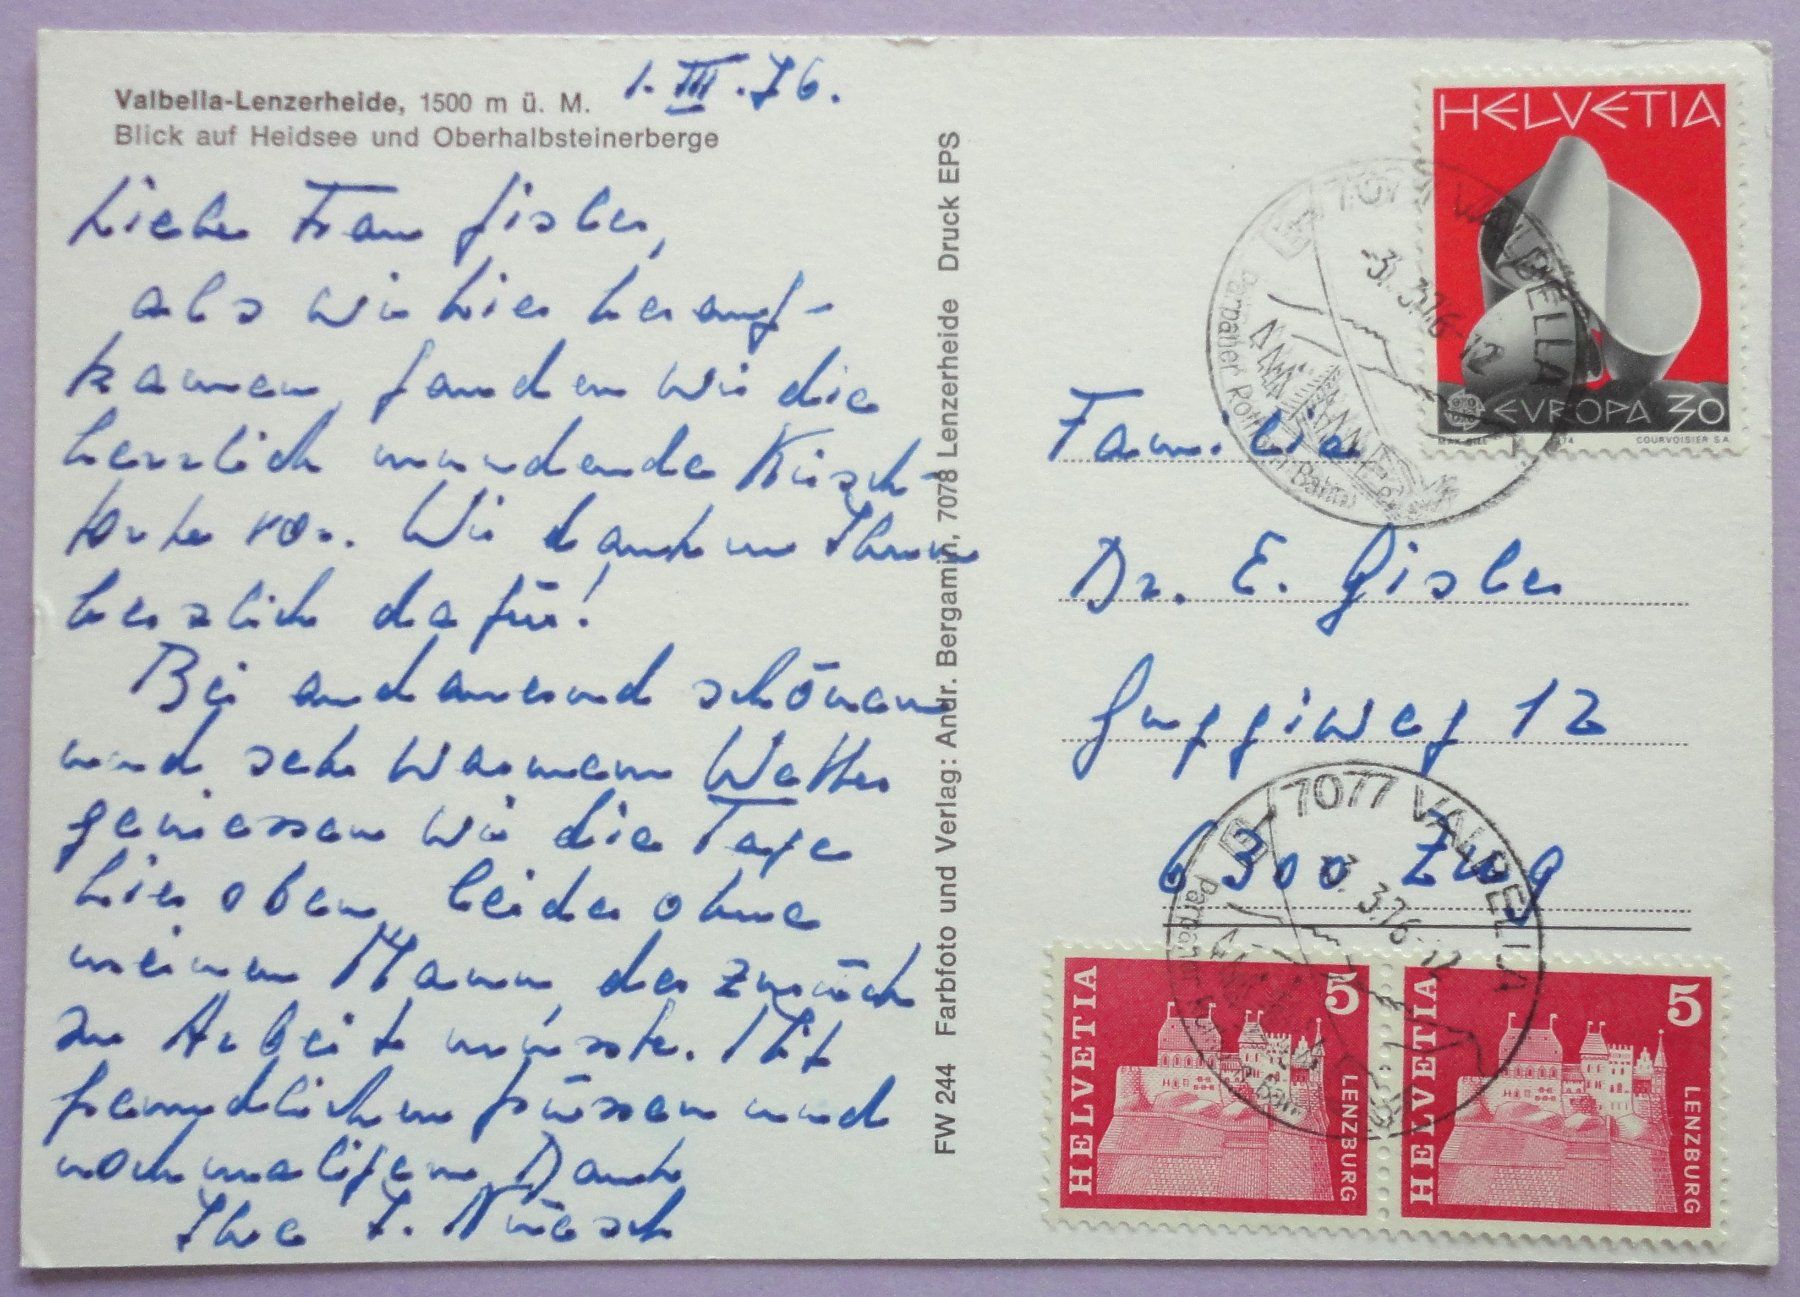 1. III. 76.
Valbella-Lenzerheide, 1500 m ü. M.
Blick auf Heidsee und Oberhalbsteinerberge
Liebe Frau Gisler,
als wir hier herauf-
kamen fanden wir die
herrlich mundende Kirsch-
torte vor. Wir danken Ihnen
herzlich dafür!
Bei andauernd schönem
und sehr warmem Wetter
geniessen wir die Tage
hier oben, leider ohne
meinen Mann der zurück
zu Arbeit müsste. Mit
freundlichen Grüssen und
nochmaligem Dank
Ihre I. Nüesch
FW 244 Farbfoto und Verlag: Andr. Bergamin, 7078 Lenzerheide Druck EPS
HELVETIA
EVROPA 30
MAX BILL 1974 COURVOISIER S A
7077 VALBELLA
-3. 3.76-12
Parpaner Rothorn-Bahn
Familie
Dr. E. Gisler
Guggiweg 12
6300 Zug
7077 VALBELLA
-3. 3.76-12
HELVETIA
5
LENZBURG
HELVETIA
5
LENZBURG